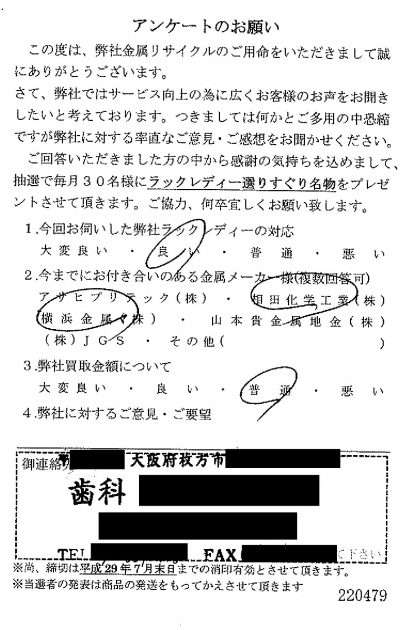 アンケートのお願い
この度は、弊社金属リサイクルのご用命をいただきまして誠
にありがとうございます。
さて、弊社ではサービス向上の為に広くお客様のお声をお聞き
したいと考えております。つきましては何かとご多用の中恐縮
ですが弊社に対する率直なご意見・ご感想をお聞かせください。
ご回答いただきました方の中から感謝の気持ちを込めまして、
抽選で毎月30名様にラックレディー選りすぐり名物をプレゼ
ントさせて頂きます。ご協力、何卒宜しくお願い致します。
1.今回お伺いした弊社ラックレディーの対応
大変良い ・ 良い ・ 普通 ・ 悪い
2.今までにお付き合いのある金属メーカー様(複数回答可)
アサヒプリテック(株) ・ 相田化学工業(株)
横浜金属(株) ・ 山本貴金属地金(株)
(株)JGS ・ その他( )
3.弊社買取金額について
大変良い ・ 良い ・ 普通 ・ 悪い
4.弊社に対するご意見・ご要望
御連絡先
大阪府枚方市
歯科
TEL FAX て下さい
※尚、締切は平成29年7月末日までの消印有効とさせて頂きます。
※当選者の発表は商品の発送をもってかえさせて頂きます
220479